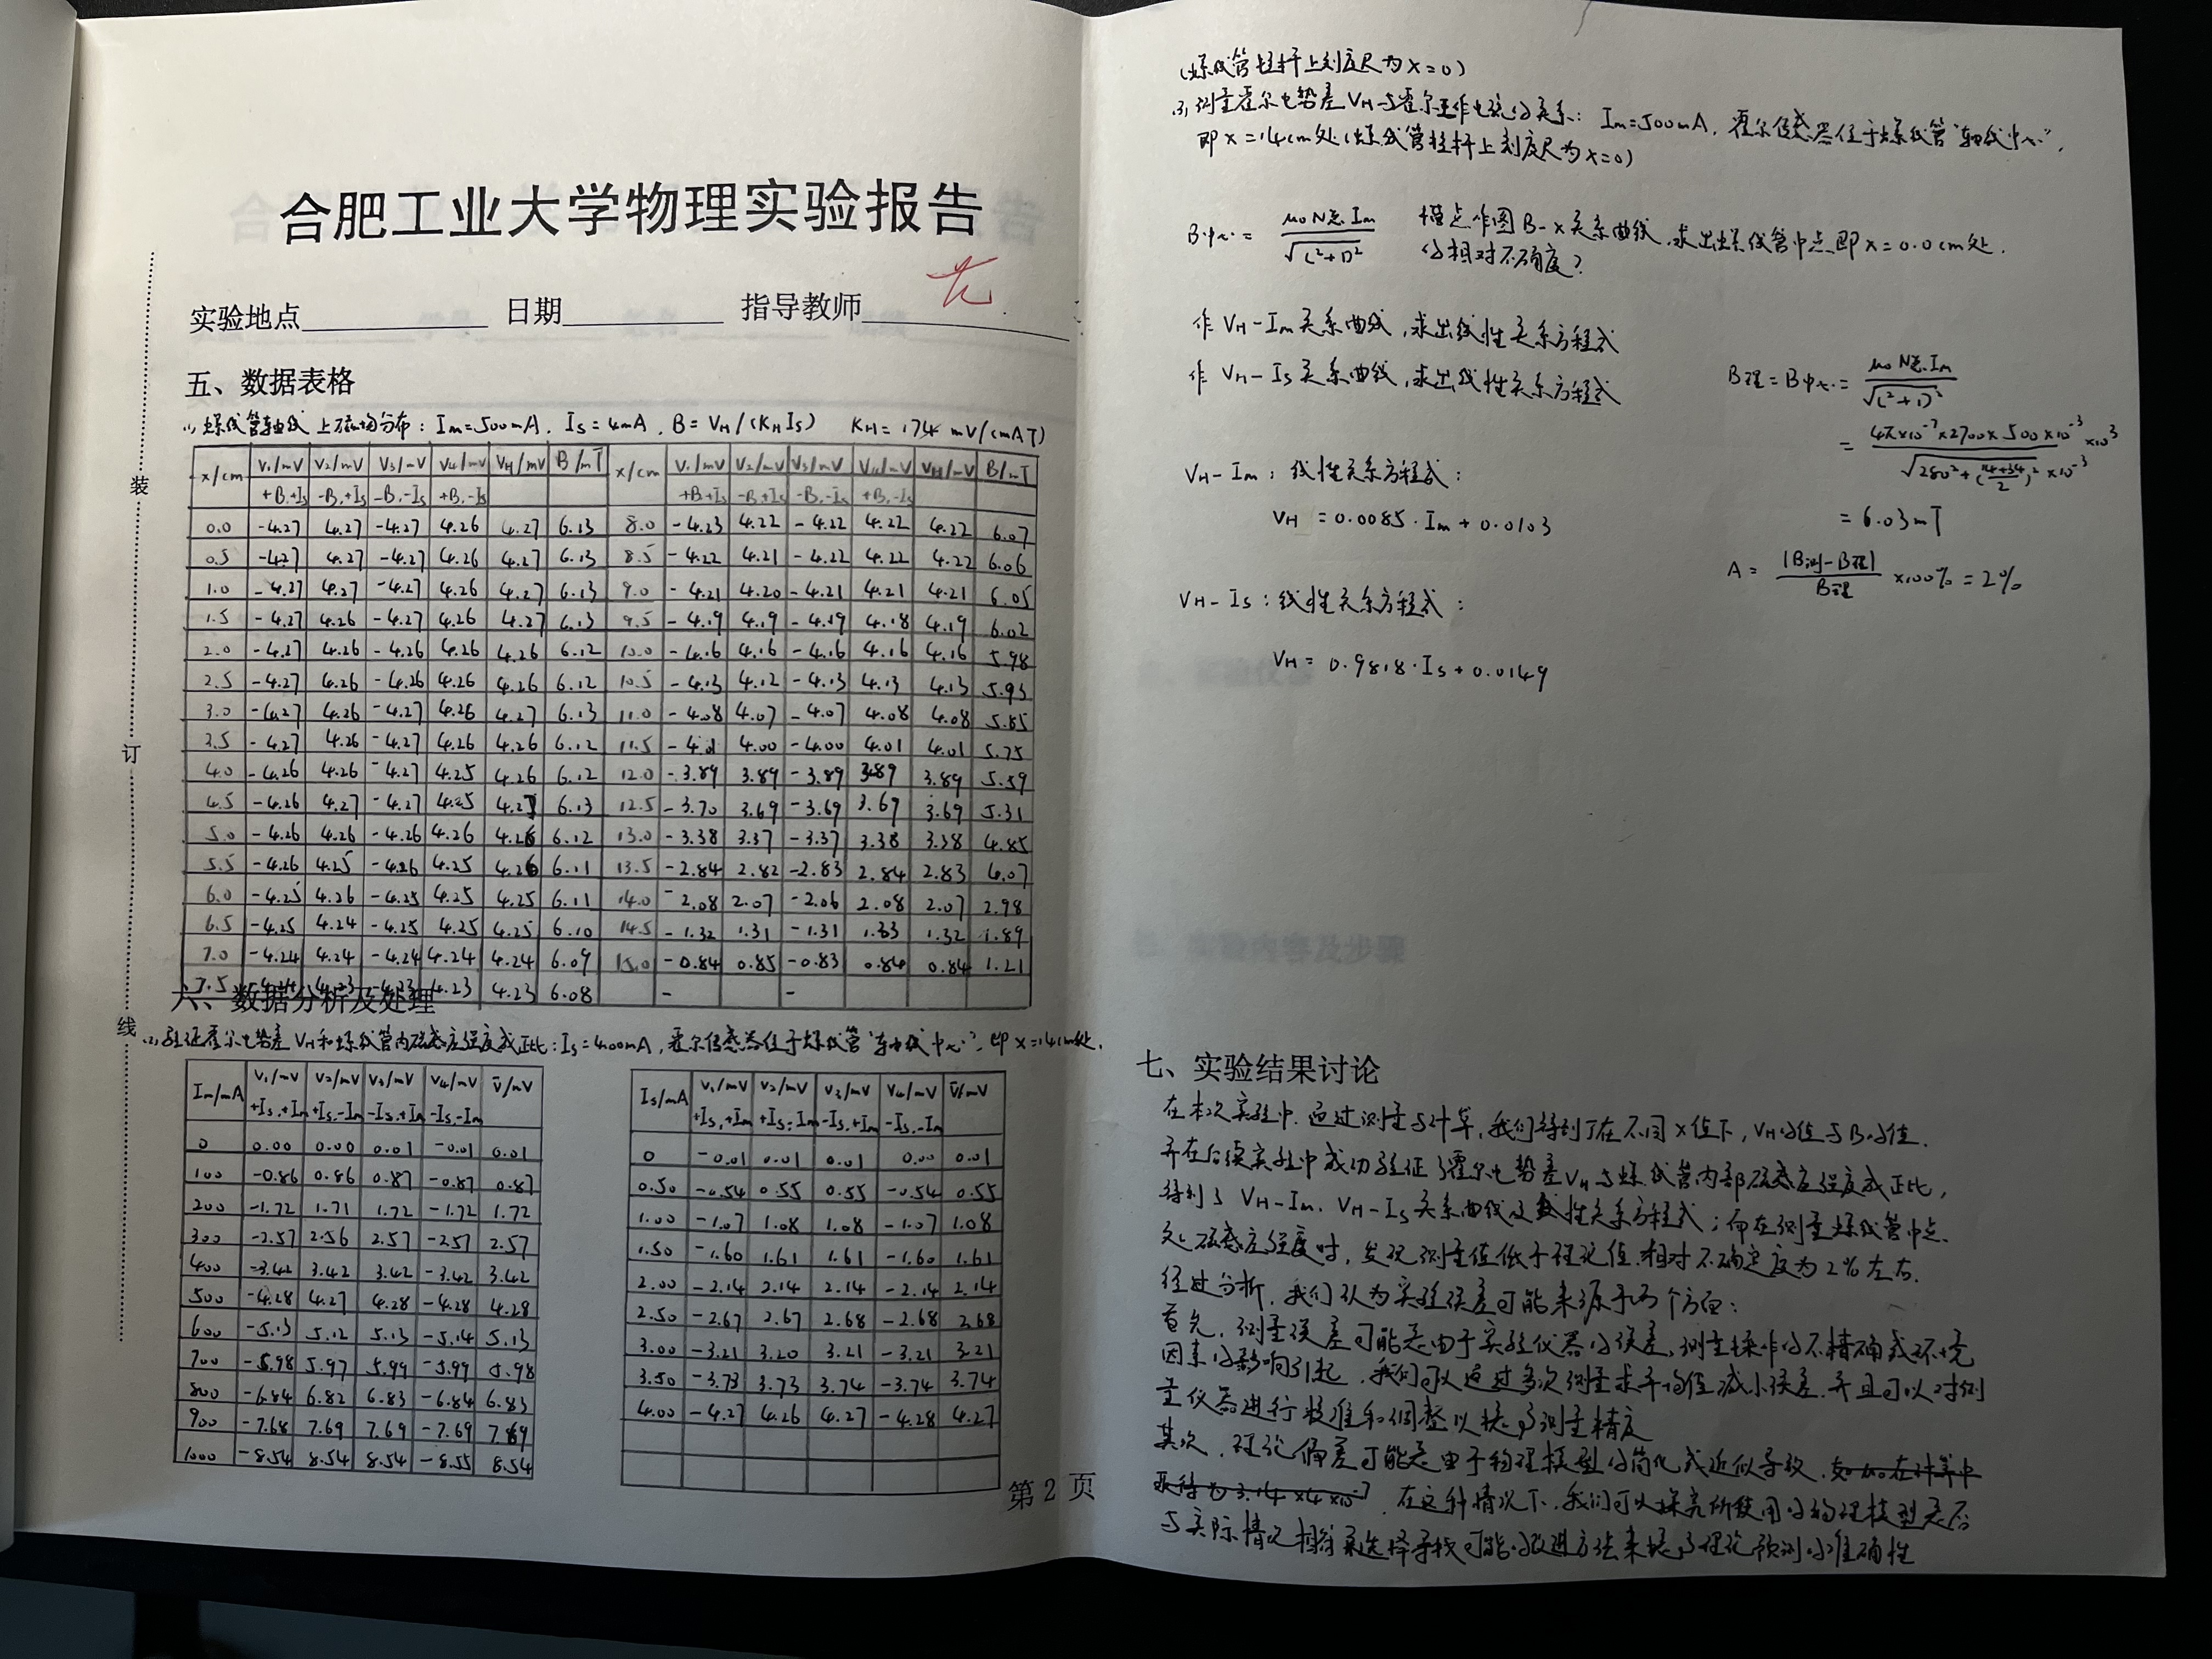 合肥工业大学物理实验报告
实验地点 日期 指导教师
五、数据表格
(1) 螺线管轴线上磁场分布: Im=500mA, Is=4mA, B=VH/(KHIs) KH=174 mV/(mAT)
x/cm V1/mV V2/mV V3/mV V4/mV VH/mV B/mT x/cm V1/mV V2/mV V3/mV V4/mV VH/mV B/mT
+B,+Is -B,+Is -B,-Is +B,-Is +B+Is -B,+Is -B,-Is +B,-Is
0.0 -4.27 4.27 -4.27 4.26 4.27 6.13 8.0 -4.23 4.22 -4.22 4.22 4.22 6.07
0.5 -4.27 4.27 -4.27 4.26 4.27 6.13 8.5 -4.22 4.21 -4.22 4.22 4.22 6.06
1.0 -4.27 4.27 -4.27 4.26 4.27 6.13 9.0 -4.21 4.20 -4.21 4.21 4.21 6.05
1.5 -4.27 4.26 -4.27 4.26 4.27 6.13 9.5 -4.19 4.19 -4.19 4.18 4.19 6.02
2.0 -4.27 4.26 -4.26 4.26 4.26 6.12 10.0 -4.16 4.16 -4.16 4.16 4.16 5.98
2.5 -4.27 4.26 -4.26 4.26 4.26 6.12 10.5 -4.13 4.12 -4.13 4.13 4.13 5.93
3.0 -4.27 4.26 -4.27 4.26 4.27 6.13 11.0 -4.08 4.07 -4.07 4.08 4.08 5.85
3.5 -4.27 4.26 -4.27 4.26 4.26 6.12 11.5 -4.01 4.00 -4.00 4.01 4.01 5.75
4.0 -4.26 4.26 -4.27 4.25 4.26 6.12 12.0 -3.89 3.89 -3.89 3.89 3.89 5.59
4.5 -4.26 4.27 -4.27 4.25 4.27 6.13 12.5 -3.70 3.69 -3.69 3.67 3.69 5.31
5.0 -4.26 4.26 -4.26 4.26 4.26 6.12 13.0 -3.38 3.37 -3.37 3.38 3.38 4.85
5.5 -4.26 4.25 -4.26 4.25 4.26 6.11 13.5 -2.84 2.82 -2.83 2.84 2.83 4.07
6.0 -4.25 4.26 -4.25 4.25 4.25 6.11 14.0 -2.08 2.07 -2.06 2.08 2.07 2.98
6.5 -4.25 4.24 -4.25 4.25 4.25 6.10 14.5 -1.32 1.31 -1.31 1.33 1.32 1.89
7.0 -4.24 4.24 -4.24 4.24 4.24 6.09 15.0 -0.84 0.85 -0.83 0.84 0.84 1.21
7.5 4.23 4.23 6.08 - -
六、数据分析及处理
(2) 验证霍尔电势差VH和螺线管内磁感应强度成正比: Is=4.00mA, 霍尔传感器位于螺线管"轴线中心", 即x=14cm处.
Im/mA V1/mV V2/mV V3/mV V4/mV V̄/mV
+Is,+Im +Is,-Im -Is,+Im -Is,-Im
0 0.00 0.00 0.01 -0.01 0.01
100 -0.86 0.86 0.87 -0.87 0.87
200 -1.72 1.71 1.72 -1.72 1.72
300 -2.57 2.56 2.57 -2.57 2.57
400 -3.42 3.42 3.42 -3.42 3.42
500 -4.28 4.27 4.28 -4.28 4.28
600 -5.13 5.12 5.13 -5.14 5.13
700 -5.98 5.97 5.99 -5.99 5.98
800 -6.84 6.82 6.83 -6.84 6.83
900 -7.68 7.69 7.69 -7.69 7.69
1000 -8.54 8.54 8.54 -8.55 8.54
Is/mA V1/mV V2/mV V3/mV V4/mV V̄/mV
+Is,+Im +Is,-Im -Is,+Im -Is,-Im
0 -0.01 0.01 0.01 0.00 0.01
0.50 -0.54 0.55 0.55 -0.54 0.55
1.00 -1.07 1.08 1.08 -1.07 1.08
1.50 -1.60 1.61 1.61 -1.60 1.61
2.00 -2.14 2.14 2.14 -2.14 2.14
2.50 -2.67 2.67 2.68 -2.68 2.68
3.00 -3.21 3.20 3.21 -3.21 3.21
3.50 -3.73 3.73 3.74 -3.74 3.74
4.00 -4.27 4.26 4.27 -4.28 4.27
第2页
装
订
线
(螺线管拉杆上刻度尺为x=0)
(3) 测量霍尔电势差VH与霍尔工作电流的关系: Im=500mA, 霍尔传感器位于螺线管"轴线中心",
即x=14cm处(螺线管拉杆上刻度尺为x=0)
B中心= μ0N总Im / √(L²+D²) 描点作图B-x关系曲线,求出螺线管中点即x=0.0cm处.
的相对不确度?
作VH-Im关系曲线,求出线性关系方程式
作VH-Is关系曲线,求出线性关系方程式
VH-Im: 线性关系方程式:
VH=0.0085·Im+0.0103
VH-Is: 线性关系方程式:
VH=0.9818·Is+0.0149
B理=B中心= μ0N总Im / √(L²+D²)
= 4π×10⁻⁷×2700×500×10⁻³ / √(280²+((14+34)/2)²)×10⁻³ ×10³
=6.03mT
A= |B测-B理| / B理 ×100%=2%
七、实验结果讨论
在本次实验中,通过测量与计算,我们得到了在不同x值下,VH的值与B的值.
并在后续实验中成功验证了霍尔电势差VH与螺线管内部磁感应强度成正比,
得到了VH-Im、VH-Is关系曲线及线性关系方程式;而在测量螺线管中点
处磁感应强度时,发现测量值低于理论值.相对不确定度为2%左右.
经过分析,我们认为实验误差可能来源于两个方面:
首先,测量误差可能是由于实验仪器的误差,测量操作的不精确或环境
因素的影响引起,我们可以通过多次测量求平均值减小误差.并且可以对测
量仪器进行校准和调整以提高测量精度
其次,理论偏差可能是由于物理模型的简化或近似导致,如μ0在计算中
取得为3.14×4×10⁻⁷.在这种情况下,我们可以探究所使用的物理模型是否
与实际情况相符来选择寻找可能的改进方法来提高理论预测的准确性